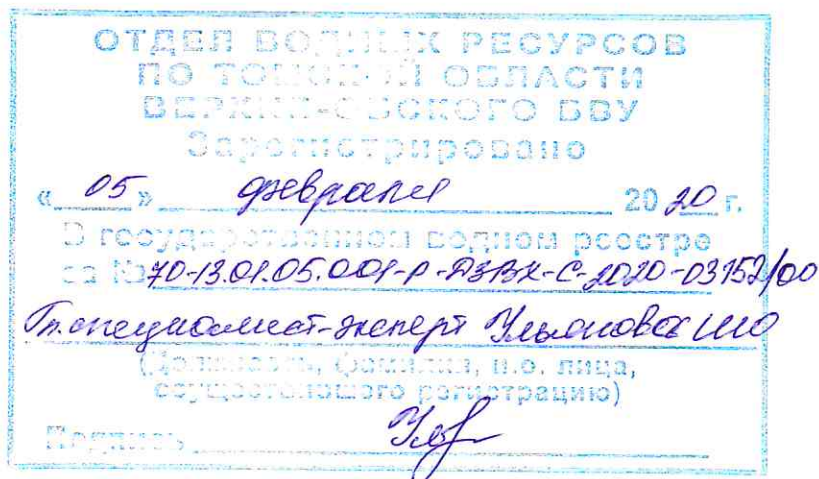 ОТДЕЛ ВОДНЫХ РЕСУРСОВ
ПО ТОМСКОЙ ОБЛАСТИ
ВЕРХНЕ-ОБСКОГО БВУ
Зарегистрировано
« 05 » февраля 2020 г.
В государственном водном реестре
за № 70-13.01.05.001-Р-ДЗВХ-С-2020-03752/00
Гл. специалист-эксперт Ульянова
(Должность, фамилия, и.о. лица,
осуществившего регистрацию)
Подпись